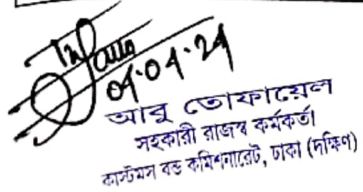 04.04.24
আবু তোফায়েল
সহকারী রাজস্ব কর্মকর্তা
কাস্টমস বন্ড কমিশনারেট, ঢাকা (দক্ষিণ)